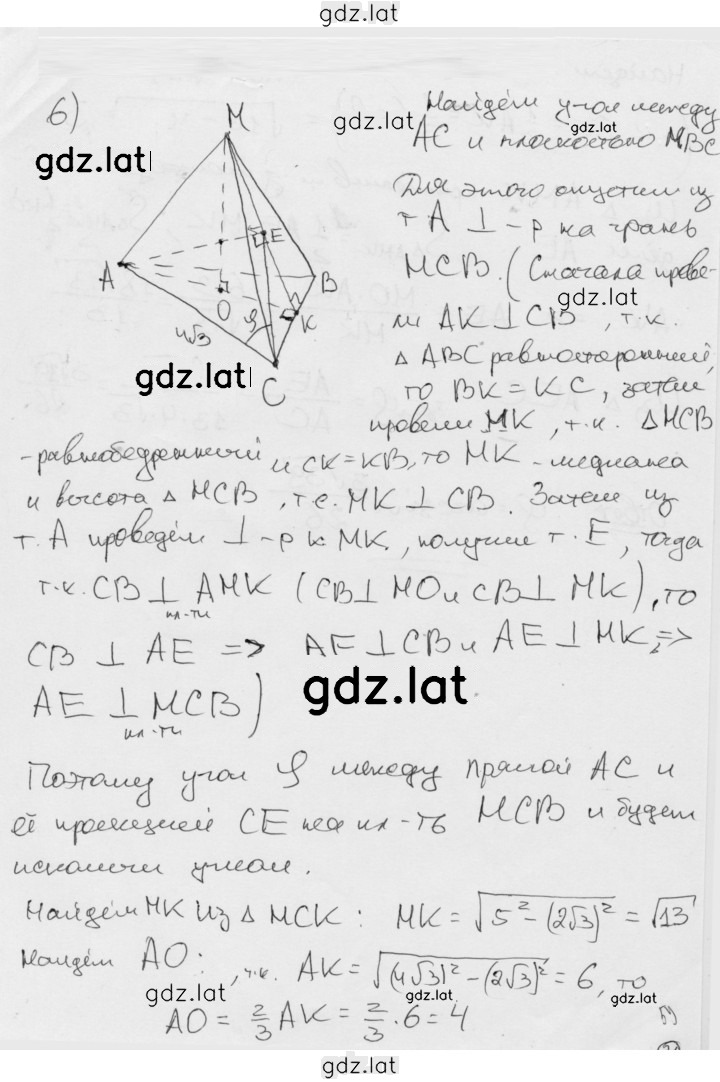 gdz.lat
б) M Найдём угол между
gdz.lat gdz.lat
AC и плоскостью MBC
gdz.lat
Для этого опустим из
т. A ⊥-р на грань
A E B
MCB. (Сначала прове-
gdz.lat
O K
ли AK⊥CB, т.к.
4√3 φ
△ ABC равносторонний,
gdz.lat
C
то BK=KC, затем
провели MK, т.к. △MCB
-равнобедренный и CK=KB, то MK - медиана
и высота △ MCB, т.е. MK ⊥ CB. Затем из
т. A проведём ⊥-р к MK, получим т. E, тогда
т.к. CB ⊥ AMK (CB⊥MO и CB⊥ MK), то
пл-ти
CB ⊥ AE => AE ⊥ CB и AE ⊥ MK, =>
AE ⊥ MCB)
пл-ти
gdz.lat
Поэтому угол φ между прямой AC и
её проекцией CE на пл-ть MCB и будет
искомым углом.
Найдём MK из △ MCK: MK = √5² - (2√3)² = √13
Найдём AO: , т.к. AK = √(4√3)² - (2√3)² = 6, то
gdz.lat gdz.lat gdz.lat
AO = 2/3 AK = 2/3 · 6 = 4
gdz.lat